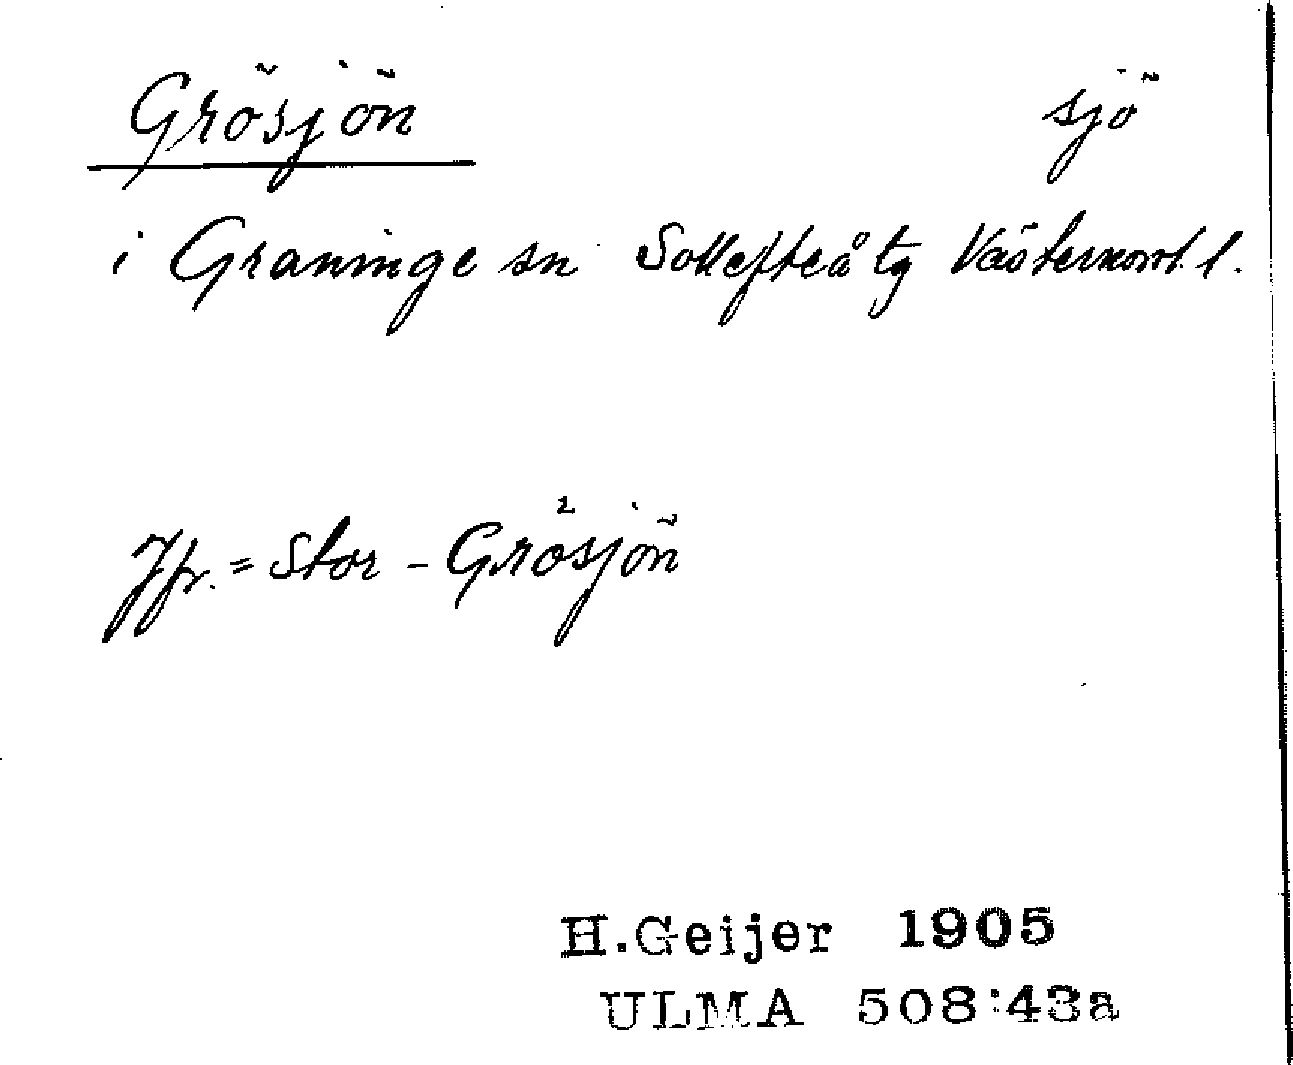 Grösjön sjö
i Graninge sn Sollefteå tg Västernorrl. l.
Jfr. = Stor - Grösjön
H.Geijer 1905
ULMA 508:43a